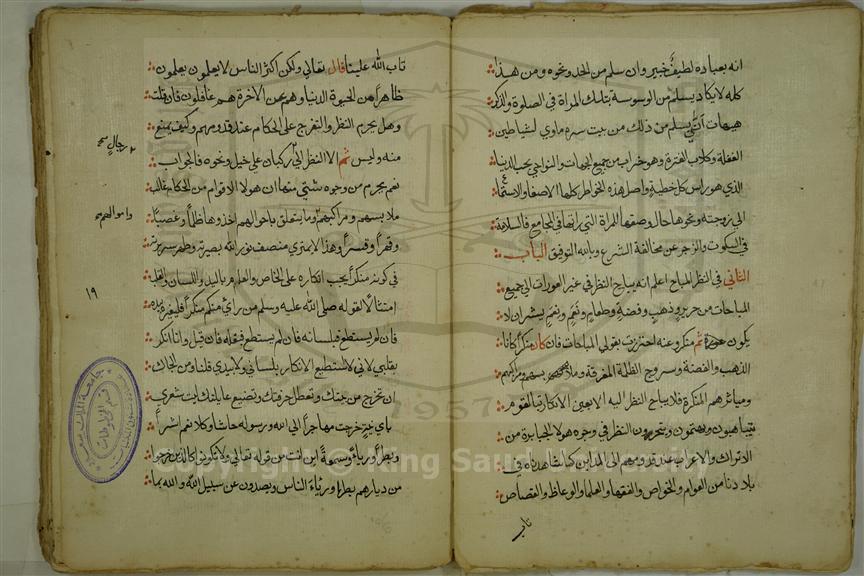 انه بعباده لطيف خبير وان سلم من الحد ونحوه ومن هذا
كله لا يكاد يسلم من الوسوسة بتلك المراة في الصلوة والذكر
هيهات انّي يسلم من ذلك من بيت سره ماوي لشياطين
الغفلة وكلاب الفترة وهو خراب من جميع الجهات والنواحي بحب الدنيا
الذي هو راس كل خطية واصل هذه الخواطر كلها الاصغا والاستماع
الي زوجته ونحوها حال وصفها المراة التي راتها في الجامع فالسلامة
في السكوت والزجر عن مخالفة الشرع وبالله التوفيق الباب
الثاني في النظر المباح اعلم انه يباح النظر في غير العورات الي جميع
المباحات من حرير وذهب وفضة وطعام ونعم ونعم بشر ان لا
يكون ثم منكر وعنه احترزت بقولي المباحات فان كان منكرا كاناء
الذهب والفضة وسروج الظلمة المغرقة وملابسهم ومراكبهم
ومياثرهم المنكرة فلا يباح النظر اليه الا بعين الانكار فالقوم
يتباهون ويهتمون النظر في وجوه هولا الجبابرة من
الاتراك والاعراب عند قدومهم الى المداين كما شاهدناه في
بلادنا من العوام والخواص والفقها والعلما والوعاظ والقصاص
تاب
تاب الله علينا قال تعالي ولكن اكثر الناس لا يعلمون يعلمون
ظاهرا من الحيوة الدنيا وهم عن الاخرة هم غافلون فان قلت
وهل يحرم النظر والتفرج على الحكام عند قدومهم وكيف يمنع
منه وليس ثم الا النظر الي ركبان علي خيل ونحوه فالجواب
نعم يحرم من وجوه شتي منها ان هولا الاقوام من الحكام غالب
ملابسهم ومراكبهم وما يتعلق باحوالهم اخذوها ظلما وغصبا
وقهرا وقسرا وهذا لا يمتري منصف نور الله بصيرته وطهر سريرته
في كونه منكرا يجب انكاره علي الخاص والعام باليد واللسان والقلب
امتثالا لقوله صلى الله عليه وسلم من راي منكم منكرا فليغيره بيده
فان لم يستطع فبلسانه فان لم يستطع فبقلبه فان قيل وانا انكر
بقلبي لاني لا استطيع الانكار بلساني ولا بيدي قلنا ومن الجاك
ان تخرج من بيتك وتعطل حرفتك وتضيع عايلتك ليت شعري
باي نية خرجت مهاجرا الي الله ورسوله حاشا وكلا نعم اشرا
وبطرا ورياء وسمعة اين انت من قوله تعالي ولا تكونوا كالذين خرجوا
من ديارهم بطرا ورئاء الناس ويصدون عن سبيل الله والله بما
رجال صح
واموالهم صح
١٩
1957
Copyright © King Saud University